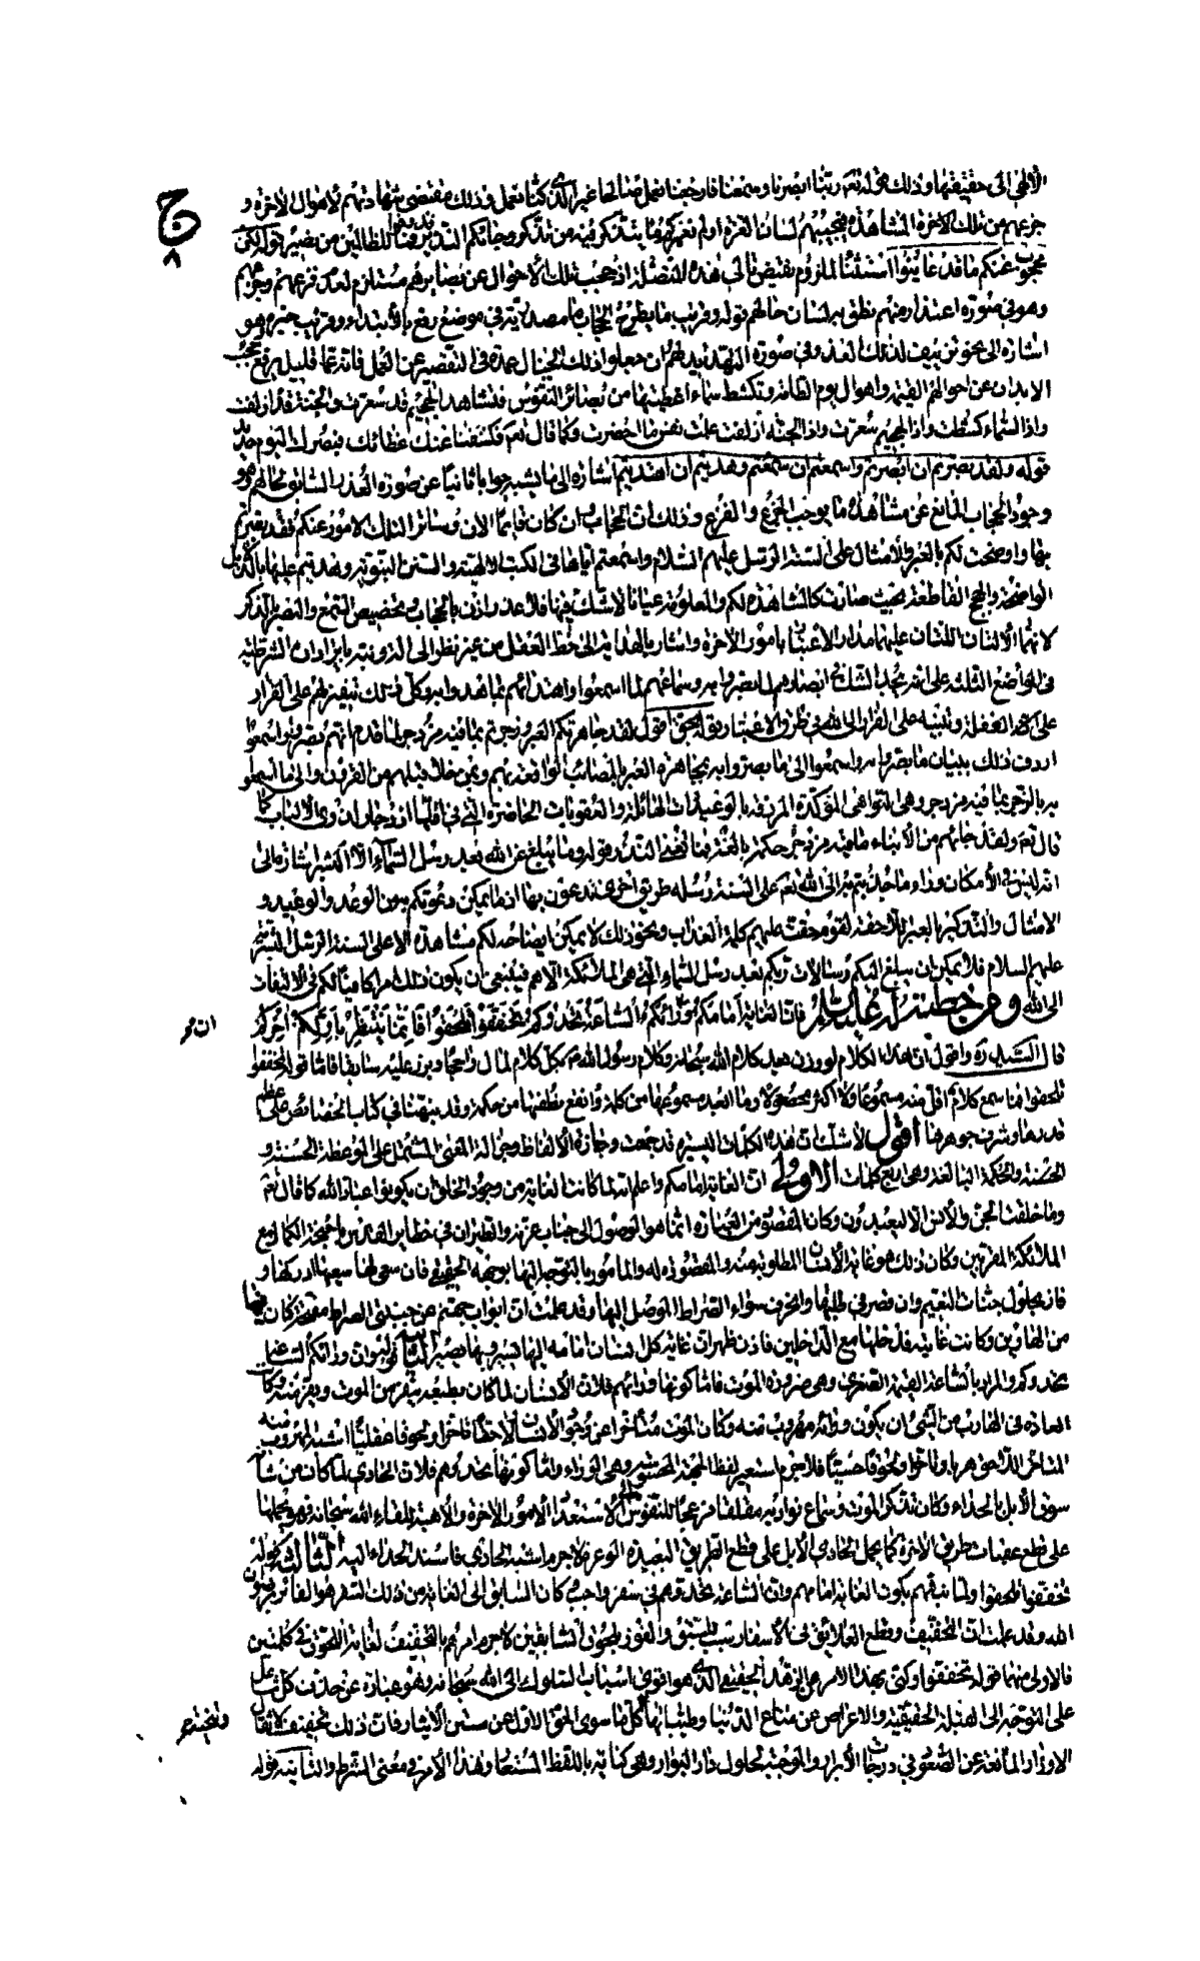 الالهى الى حقيقتها وذلك قوله تعالى ربنا ابصرنا وسمعنا فارجعنا نعمل صالحا غير الذى كنا نعمل وذلك مقتضى شهادتهم لاهوال الاخرة و
جزعهم من تلك الاخرة المشاهدة فيجيبهم لسان العزة اولم نعمركم ما يتذكر فيه من تذكر وجاءكم النذير فذوقوا فما للظالمين من نصير قوله لكن
محجوب عنكم ما قد عاينوا استثناء لملزوم نقيض تالى هذه المتصلة اذ حجب تلك الاحوال عن بصائرهم مستلزم لعدم فزعهم وجزعهم
وهو فى صورة اعتذار منهم نطق به لسان حالهم قوله وقريب ما يطرح الحجاب ما مصدرية فى موضع رفع بالابتداء وقريب خبره وهو
اشارة الى نحو تزييف لذلك العذر وفى صورة التهديد لهم ان جعلوا ذلك الخيال عمدة فى التقصير عن العمل فانه عما قليل يرفع حجب
الابدان عن احوالهم القيمة واهوال يوم الطامة وتكشط سماء اغطيتها من بصائر النفوس فتشاهد الجحيم قد سعرت والجنة قد ازلفت
واذا السماء كشطت واذا الجحيم سعرت واذا الجنة ازلفت علمت نفس ما احضرت وكما قال تعالى فكشفنا عنك غطائك فبصرك اليوم حديد
قوله ولقد بصرتم ان ابصرتم واسمعتم ان سمعتم وهديتم ان اهتديتم اشارة الى ما يشبه جوابا ثانيا عن صورة العذر السابق لحالهم وهو
وجود الحجاب المانع عن مشاهدة ما يوجب الجزع والفزع وذلك ان الحجاب وان كان قايما الآن وساترا لتلك الامور عنكم فقد بصرتم
بها واوضحت لكم بالعبر والامثال على السنة الرسل عليهم السلام واسمعتم اياها فى الكتب الالهية والسنن النبوية وهديتم عليها بالدلائل
الواضحة والحجج القاطعة بحيث صارت كالمشاهدة لكم والمعلومة عيانا لا شك فيها فلا عذر اذن بالحجاب وتخصيص السمع والبصر بالذكر
لانهما الالتان اللتان عليهما مدار الاعتبار بامور الاخرة واشار بالهداية الى حظ العقل من غير نظر الى الة ونبه بايراد ان الشرطية
فى المواضع الثلثة على
على
اردف ذلك ببيان ما بصروا به واسمعوا الى ما بصروا به بمجاهرة العبر بالمصائب الواقعة بهم وبمن خلا قبلهم من القرون والى ما اسمعوا
به بالزجر بما فيه مزدجر وهى النواهى المؤكدة المردفة بالوعيدات الهائلة والعقوبات الحاضرة التى فى اقلها ازدجار لذوى الالباب كما
قال تعالى ولقد جاءهم من الانباء ما فيه مزدجر حكمة بالغة فما تغنى النذر قوله وما يبلغ عن الله بعد رسل السماء الا البشر اشارة الى
انه ليس فى الامكان وراء ما جذبتم به الى الله تعالى على السنة رسله طريق اخرى تدعون بها اذ ما يمكن دعوتكم به من الوعد والوعيد و
الامثال والتذكير بالعبر اللاحقة لقوم حقت عليهم كلمة العذاب ونحو ذلك لا يمكن ايضاحه لكم مشاهدة الا على السنة الرسل البشرية
عليهم السلام فلا يمكن ان يبلغ اليكم رسالات ربكم بعد رسل السماء التى هى الملائكة الا هم فينبغى ان يكون ذلك امرا كافيا لكم فى الالتفات
الى الله ومن خطبة له عليه السلام فان الغاية امامكم وان ورائكم الساعة تحدوكم تخففوا تلحقوا فانما ينتظر باولكم اخركم
قال السيد ره واقول ان هذا الكلام لو وزن بعد كلام الله سبحانه وكلام رسول الله ص بكل كلام لمال راجحا وبرز عليه سابقا فاما قوله تخففوا
تلحقوا فما سمع كلام اقل منه مسموعا ولا اكثر محصولا وما ابعد مسموعها من كلمة وانقع نطفتها من حكمة وقد نبهنا فى كتاب الخصائص على عظم
قدرها وشرف جوهرها اقول لا شك ان هذه الكلمات اليسيرة قد جمعت وجازة الالفاظ وجزالة المعنى المشتمل على الموعظة الحسنة و
الحكمة البالغة وهى اربع كلمات الاولى ان الغاية امامكم واعلم انه لما كانت الغاية من وجود الخلق ان يكونوا عباد الله كما قال تعالى
وما خلقت الجن والانس الا ليعبدون وكان المقصود من العبادة انما هو الوصول الى جناب عزته والطيران فى حظاير القدس باجنحة الكمال مع
الملائكة المقربين وكان ذلك هو غاية الانسان المطلوبة منه والمقصودة له والمامور بالتوجه اليها بوجهه الحقيقى فان سعى لها سعيها ادركها و
فاز بحلول جنات النعيم وان قصر فى طلبها وانحرف سواء الصراط الموصل اليها وقد علمت ان ابواب جهنم عن جنبتى الصراط مفتحة كان فيها
من الهاوين وكانت غايته فدخلها مع الداخلين فاذن ظهر ان غاية كل انسان امامه اليها يسير وبها يصير الثانية قوله وان ورائكم الساعة
تحدوكم والمراد بالساعة القيمة الصغرى وهى ضرورة الموت فاما كونها ورائهم فلان الانسان لما كان بطبعه ينفر من الموت ويفر منه وكان
العادة فى الهارب من الشئ ان يكون وراءه مهروب منه وكان الموت متأخرا عن وجود الانسان لاحقا تاخرا ولحوقا عقليا اشبه المهروب منه
المتاخر اللاحق هربا وتاخرا ولحوقا حسيا فلا جرم استعير لفظ الجهة المحسوسة وهى الوراء واما كونها تحدوهم فلان الحادى لما كان من شأنه
سوق الابل بالحداء وكان تذكر الموت وسماع نوادبه مقلقا مزعجا للنفوس الى الاستعداد لامور الاخرة والاهبة للقاء الله سبحانه فهو يحملها
على قطع عقبات طريق الاخرة كما يحمل الحادى الابل على قطع الطريق البعيدة الوعرة لا جرم اشبه الحادى فاسند الحداء اليه الثالثة قوله
تخففوا تلحقوا ولما نبههم بكون الغاية امامهم وان الساعة تحدوهم فى سفر واجب وكان السابق الى الغاية من ذلك السفر هو الفائز برضوان
الله وقد علمت ان التخفيف وقطع العلائق فى الاسفار سبب للسبق والفوز بلحوق السابقين لا جرم امرهم بالتخفيف لغاية اللحوق فى كلمتين
فالاولى منهما قوله تخففوا وكنى بهذا الامر عن الزهد الحقيقى الذى هو اقوى اسباب السلوك الى الله سبحانه وهو عبارة عن حذف كل شاغل
على التوجه الى القبلة الحقيقية والاعراض عن متاع الدنيا وطيباتها وكل ما سوى الحق الاول عن سنن الايثار فان ذلك تخفيف لاثقال
الاوزار المانعة عن الصعود فى درجات الابرار والموجبة لحلول دار البوار وهى كناية باللفظ المستعار وهذا الامر فى معنى الشرط والثانية قوله